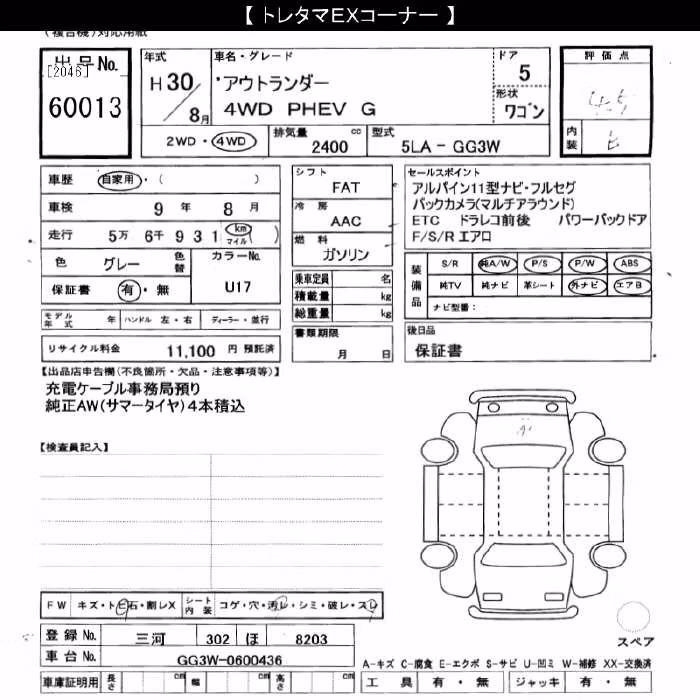 【 トレタマEXコーナー 】
(複合機)対応用紙
出品No.
[2046]
60013
年式
H30/8月
車名・グレード
アウトランダー
4WD PHEV G
ドア
5
形状
ワゴン
評価点
内装
2WD・4WD
排気量 2400 cc
型式 5LA-GG3W
車歴 自家用・( )
車検 9年 8月
走行 5万 6千 931 km マイル ( )
色 グレー 色替
カラーNo. U17
保証書 有・無
モデル年式 年 ハンドル 左・右 ディーラー・並行
リサイクル料金 11,100 円 預託済
シフト
FAT
冷房
AAC
燃料
ガソリン
乗車定員 名
積載量 kg
総重量 kg
書類期限
月 日
セールスポイント
アルパイン11型ナビ・フルセグ
バックカメラ(マルチアラウンド)
ETC ドラレコ前後 パワーバックドア
F/S/R エアロ
装備品
S/R 純A/W P/S P/W ABS
純TV 純ナビ 革シート 外ナビ エアB
ナビ型番:
後日品
保証書
【出品店申告欄(不良箇所・欠品・注意事項等)】
充電ケーブル事務局預り
純正AW(サマータイヤ)4本積込
【検査員記入】
FW キズ・トビ石・割レX シート内装 コゲ・穴・汚レ・シミ・破レ・スレ
登録No. 三河 302 ほ 8203
車台No. GG3W-0600436
車庫証明用 長さ cm 幅 cm 高さ cm
スペア
A-キズ C-腐食 E-エクボ S-サビ U-凹ミ W-補修 XX-交換済
工具 有・無 ジャッキ 有・無